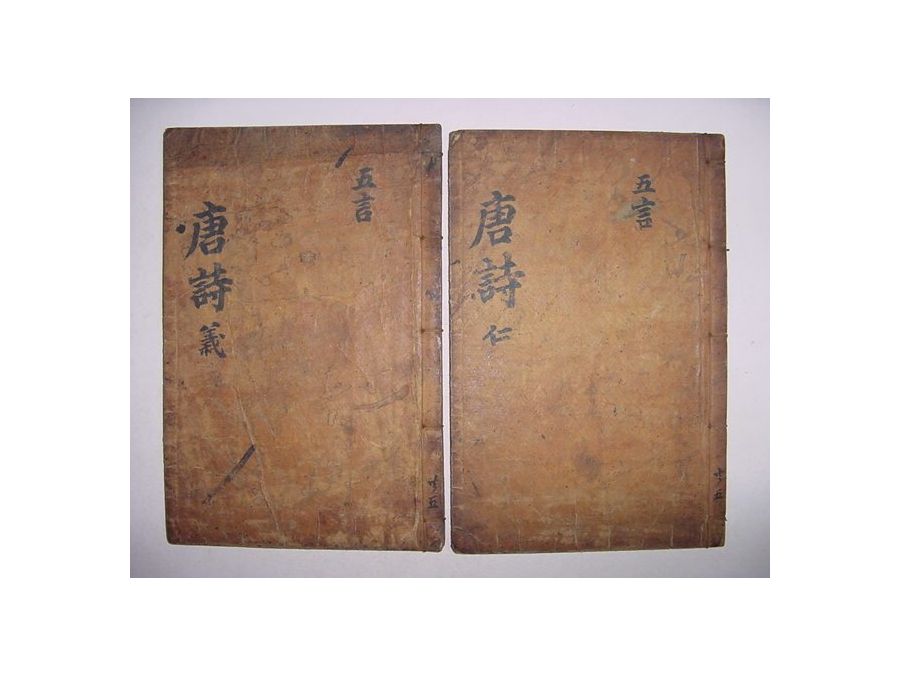 五言
唐詩 仁
共五
五言
唐詩 義
共五